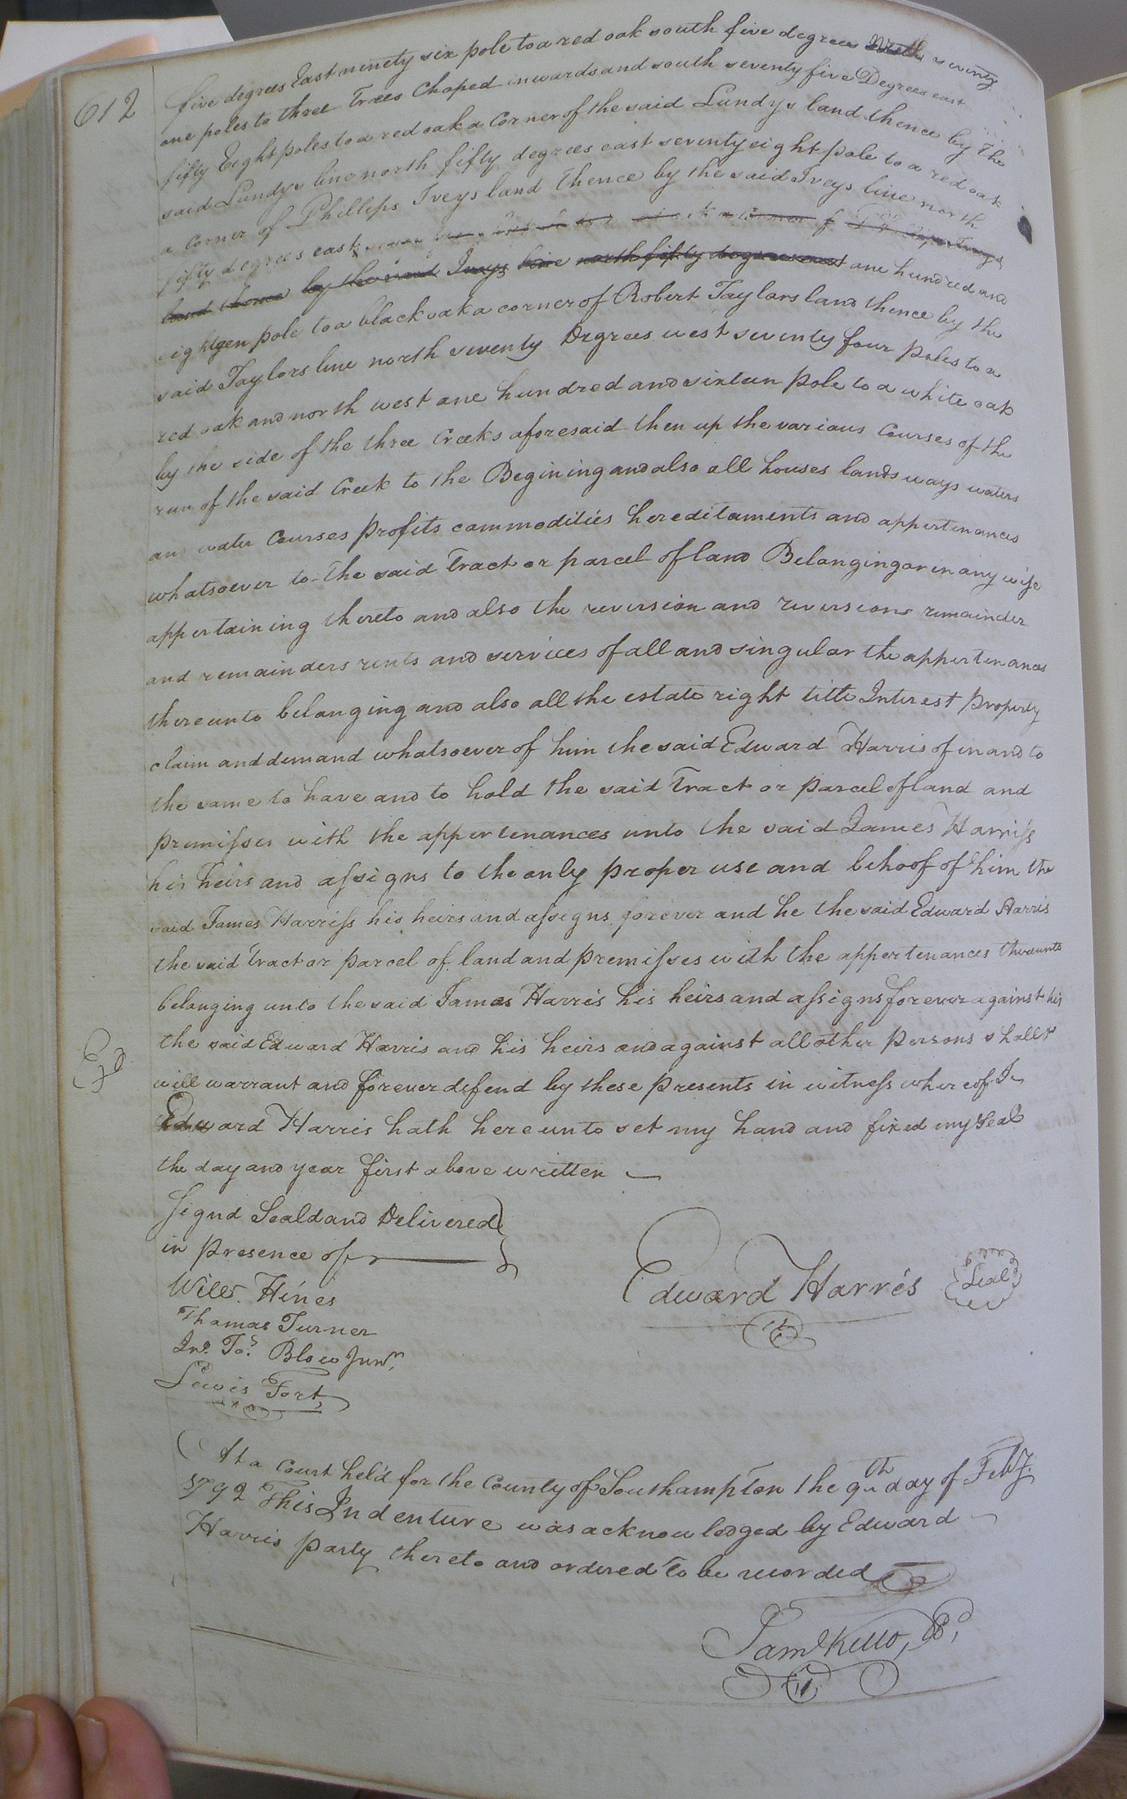 612
five degrees East ninety six pole to a red oak south five degrees North seventy
one poles to three Trees Choped inwards and south seventy five Degrees east
fifty Eight poles to a red oak a Corner of the said Lundys land thence by the
said Lundys line north fifty degrees east seventy eight pole to a red oak
a corner of Phillips Iveys land thence by the said Iveys line north
fifty degrees east
land thence by the said Iveys line north fifty degrees east one hundred and
eighteen pole to a black oak a corner of Robert Taylors land thence by the
said Taylors line north seventy Degrees west seventy four poles to a
red oak and north west one hundred and sixteen pole to a white oak
by the side of the three Creeks aforesaid then up the various Courses of the
run of the said Creek to the Begining and also all houses lands ways waters
and water Courses profits commodities hereditaments and appertenances
whatsoever to the said Tract or parcel of land Belonging or in any wise
appertaining thereto and also the reversion and reversions remainder
and remainders rents and services of all and singular the appertenances
thereunto belonging and also all the estate right title Interest property
claim and demand whatsoever of him the said Edward Harris of in and to
the same to have and to hold the said Tract or parcel of land and
premisses with the appertenances unto the said James Harriss
his heirs and assigns to the only proper use and behoof of him the
said James Harriss his heirs and assigns forever and he the said Edward Harris
the said Tract or parcel of land and premisses with the appertenances thereunto
belonging unto the said James Harris his heirs and assigns forever against his
the said Edward Harris and his heirs and against all other persons shall &
will warrant and forever defend by these presents in witness whereof I
Edward Harris hath hereunto set my hand and fixed my Seal
the day and year first above written
Signd Seald and Delivered
in presence of
Edward Harris Seal
Will. Hines
Thomas Turner
Jno. Ts. Blow Junr,
Lewis Fort
At a Court held for the County of Southampton the 9th day of Feby.
1792 This Indenture was acknowledged by Edward
Harris party thereto and ordered to be recorded
Saml Kello,